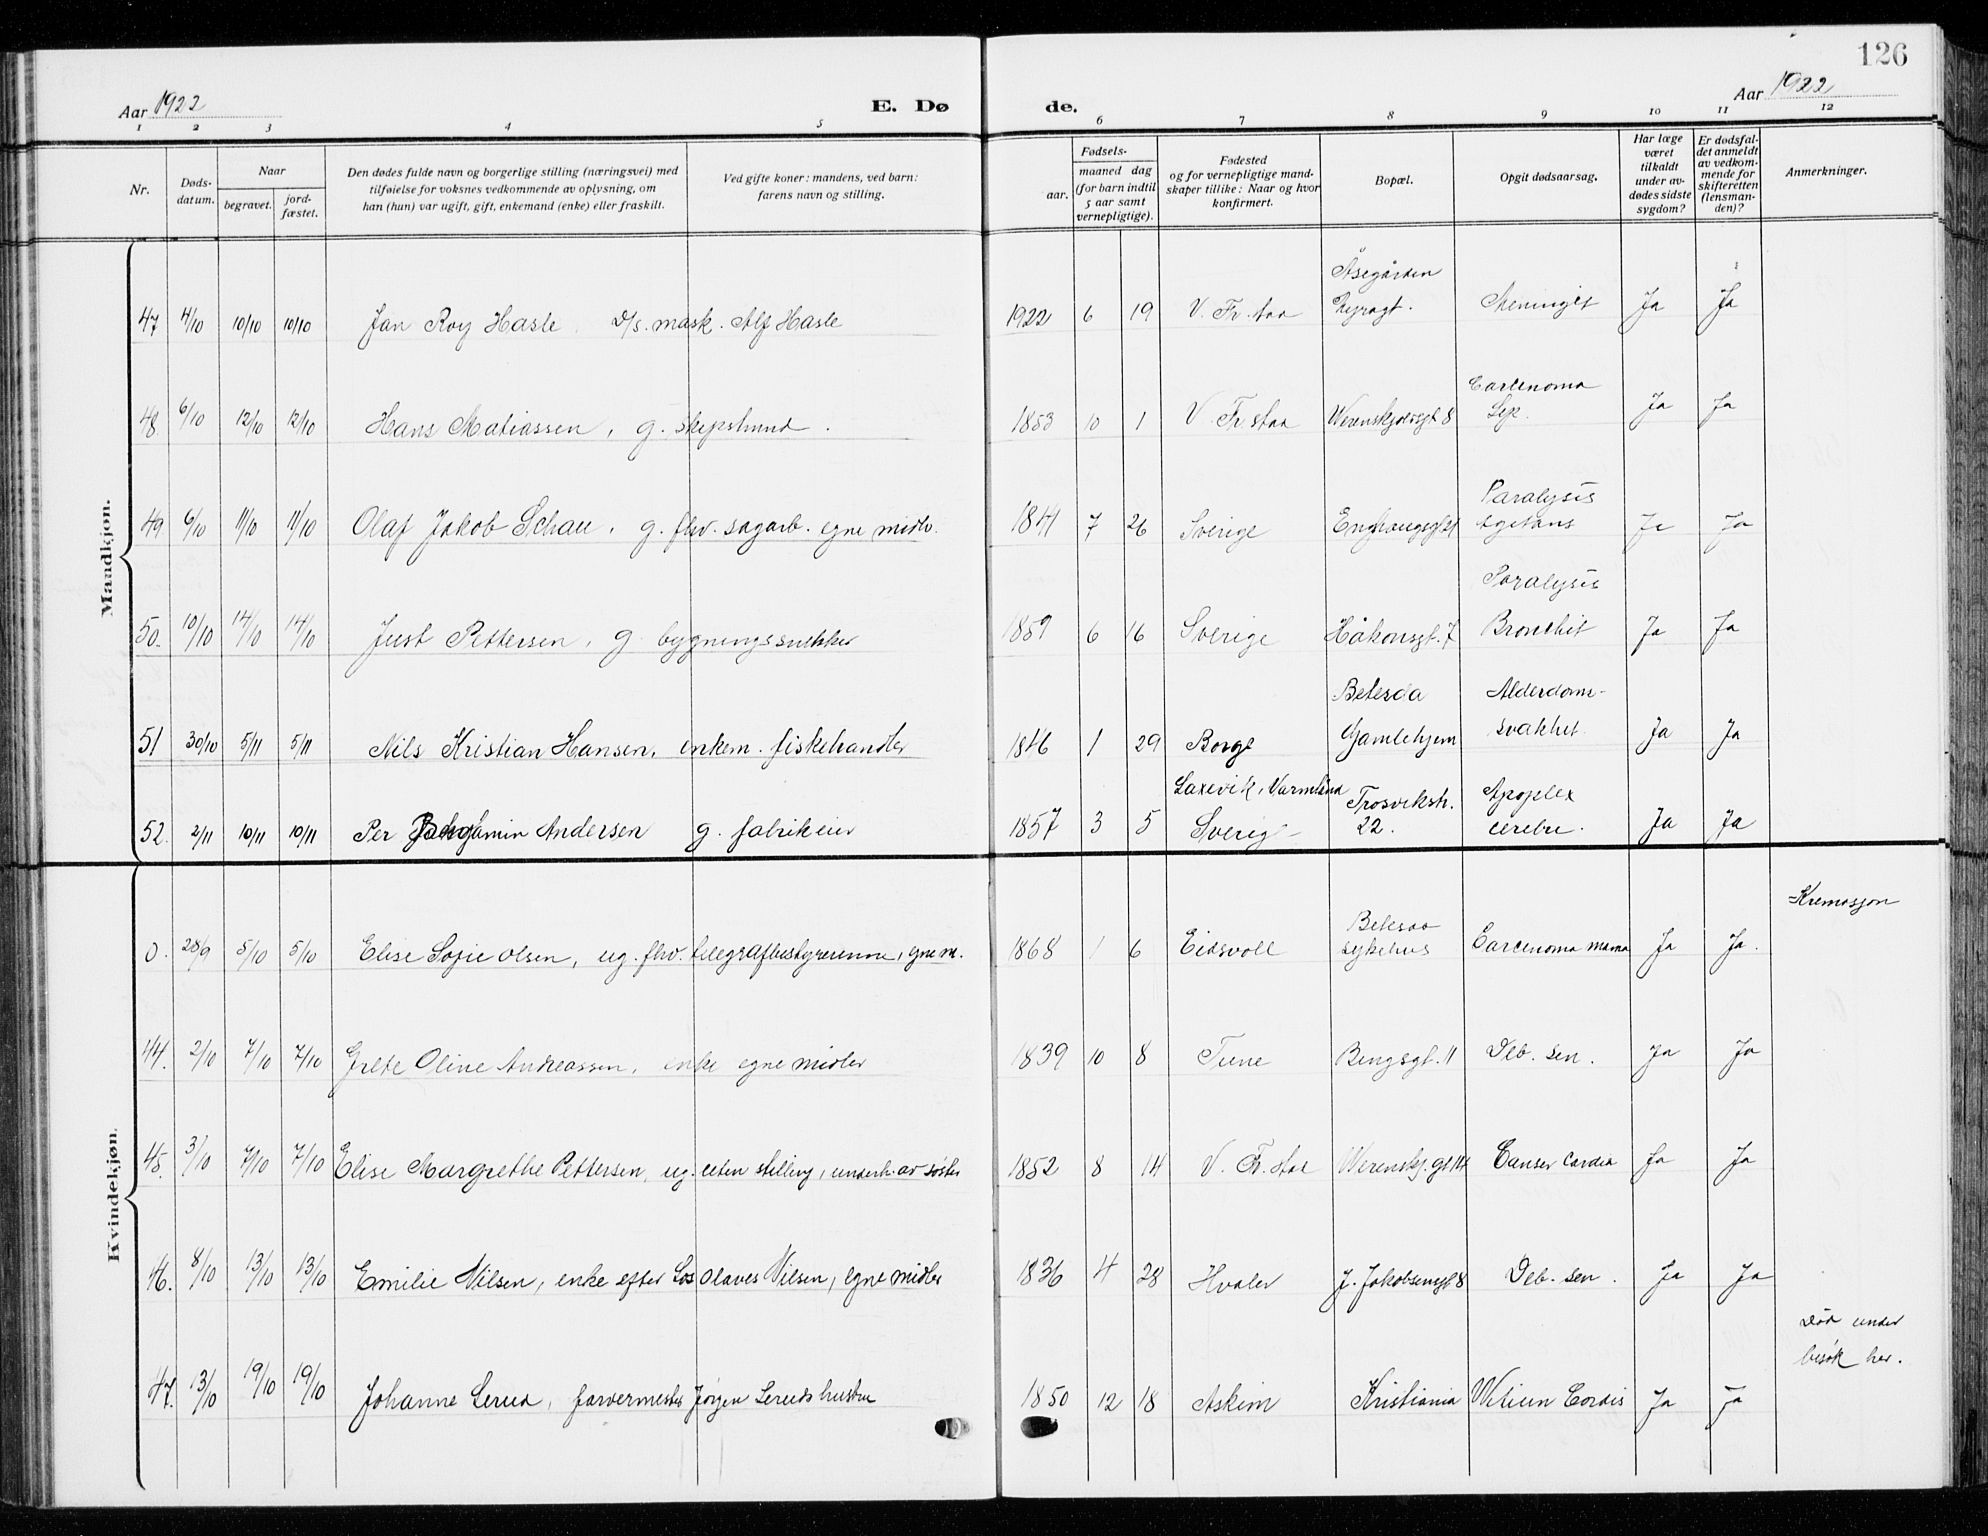 126
Aar 1922
E. Dø
de.
Aar 1922
1 2 3 4 5 6 7 8 9 10 11 12
Nr.
Døds-
datum.
Naar
begravet.
jord-
fæstet.
Den dødes fulde navn og borgerlige stilling (næringsvei) med
tilføielse for voksnes vedkommende av oplysning, om
han (hun) var ugift, gift, enkemand (enke) eller fraskilt.
Ved gifte koner: mandens, ved barn:
farens navn og stilling.
Fødsels-
aar.
maaned dag
(for barn indtil
5 aar samt
vernepligtige).
Fødested
og for vernepligtige mand-
skaper tillike: Naar og hvor
konfirmert.
Bopæl.
Opgit dødsaarsag.
Har læge
været
tilkaldt
under av-
dødes sidste
sygdom?
Er dødsfal-
det anmeldt
av vedkom-
mende for
skifteretten
(lensman-
den)?
Anmerkninger.
Mandkjøn.
Åsegården
47 4/10 10/10 10/10 Jan Roy Hasle d/s. mask. Alf Hasle 1922 6 19 V. Fr.stad Meningit Ja Ja
Carcinoma
48 6/10 12/10 12/10 Hans Matiassen, g. skipstømm. 1853 10 1 V. Fr.stad Werenskjoldsgt 8 Lep. Ja Ja
Paralysis
49 6/10 11/10 11/10 Olaf Jakob Schau, g. fhv. sagarb. egne midler. 1841 7 26 Sverige Enghaugsgt 21 agitans Ja Ja
Paralysis
50. 10/10 14/10 14/10 Just Pettersen, g. bygningssnekker 1859 6 16 Sverige Håkonsgt. 7 Bronchit Ja Ja
Betesda Alderdoms-
51 30/10 5/11 5/11 Nils Kristian Hansen, enkem. fiskehandler 1846 1 29 Borge Gamlehjem svakhet. Ja Ja
Laxevik, Varmland Trosvikstr. Apoplex
52. 2/11 10/11 10/11 Per Benjamin Andersen g. fabrikeier 1857 3 5 Sverig 22. cerebr. Ja Ja
Kvindekjøn.
Kremasjon
Betesda
0. 28/9 5/10 5/10 Elise Sofie Olsen, ug. fhv. telegrafbestyrerinne, egne m. 1868 1 6 Eidsvoll sykehus Carcinoma mama Ja Ja.
44. 2/10 7/10 7/10 Grete Oline Andreassen, enke egne midler 1839 10 8 Tune Bengsgt. 11 Deb. sen. Ja Ja
45. 3/10 7/10 7/10 Elise Margrethe Pettersen, ug. uten stilling, underh. av søster 1852 8 14 V. Fr.stad Werenskj. gt 14 Canser Cardia Ja Ja
46. 8/10 13/10 13/10 Emilie Nilsen, enke efter Los Olaves Nilsen, egne midler 1836 4 28 Hvaler J. Jakobsensgt 8 Deb. sen. Ja Ja
Død under
besøk her.
47. 13/10 19/10 19/10 Johanne Lerud, farvermester Jørgen Leruds hustru 1850 12 18 Askim Kristiania Vitium Cordis Ja Ja